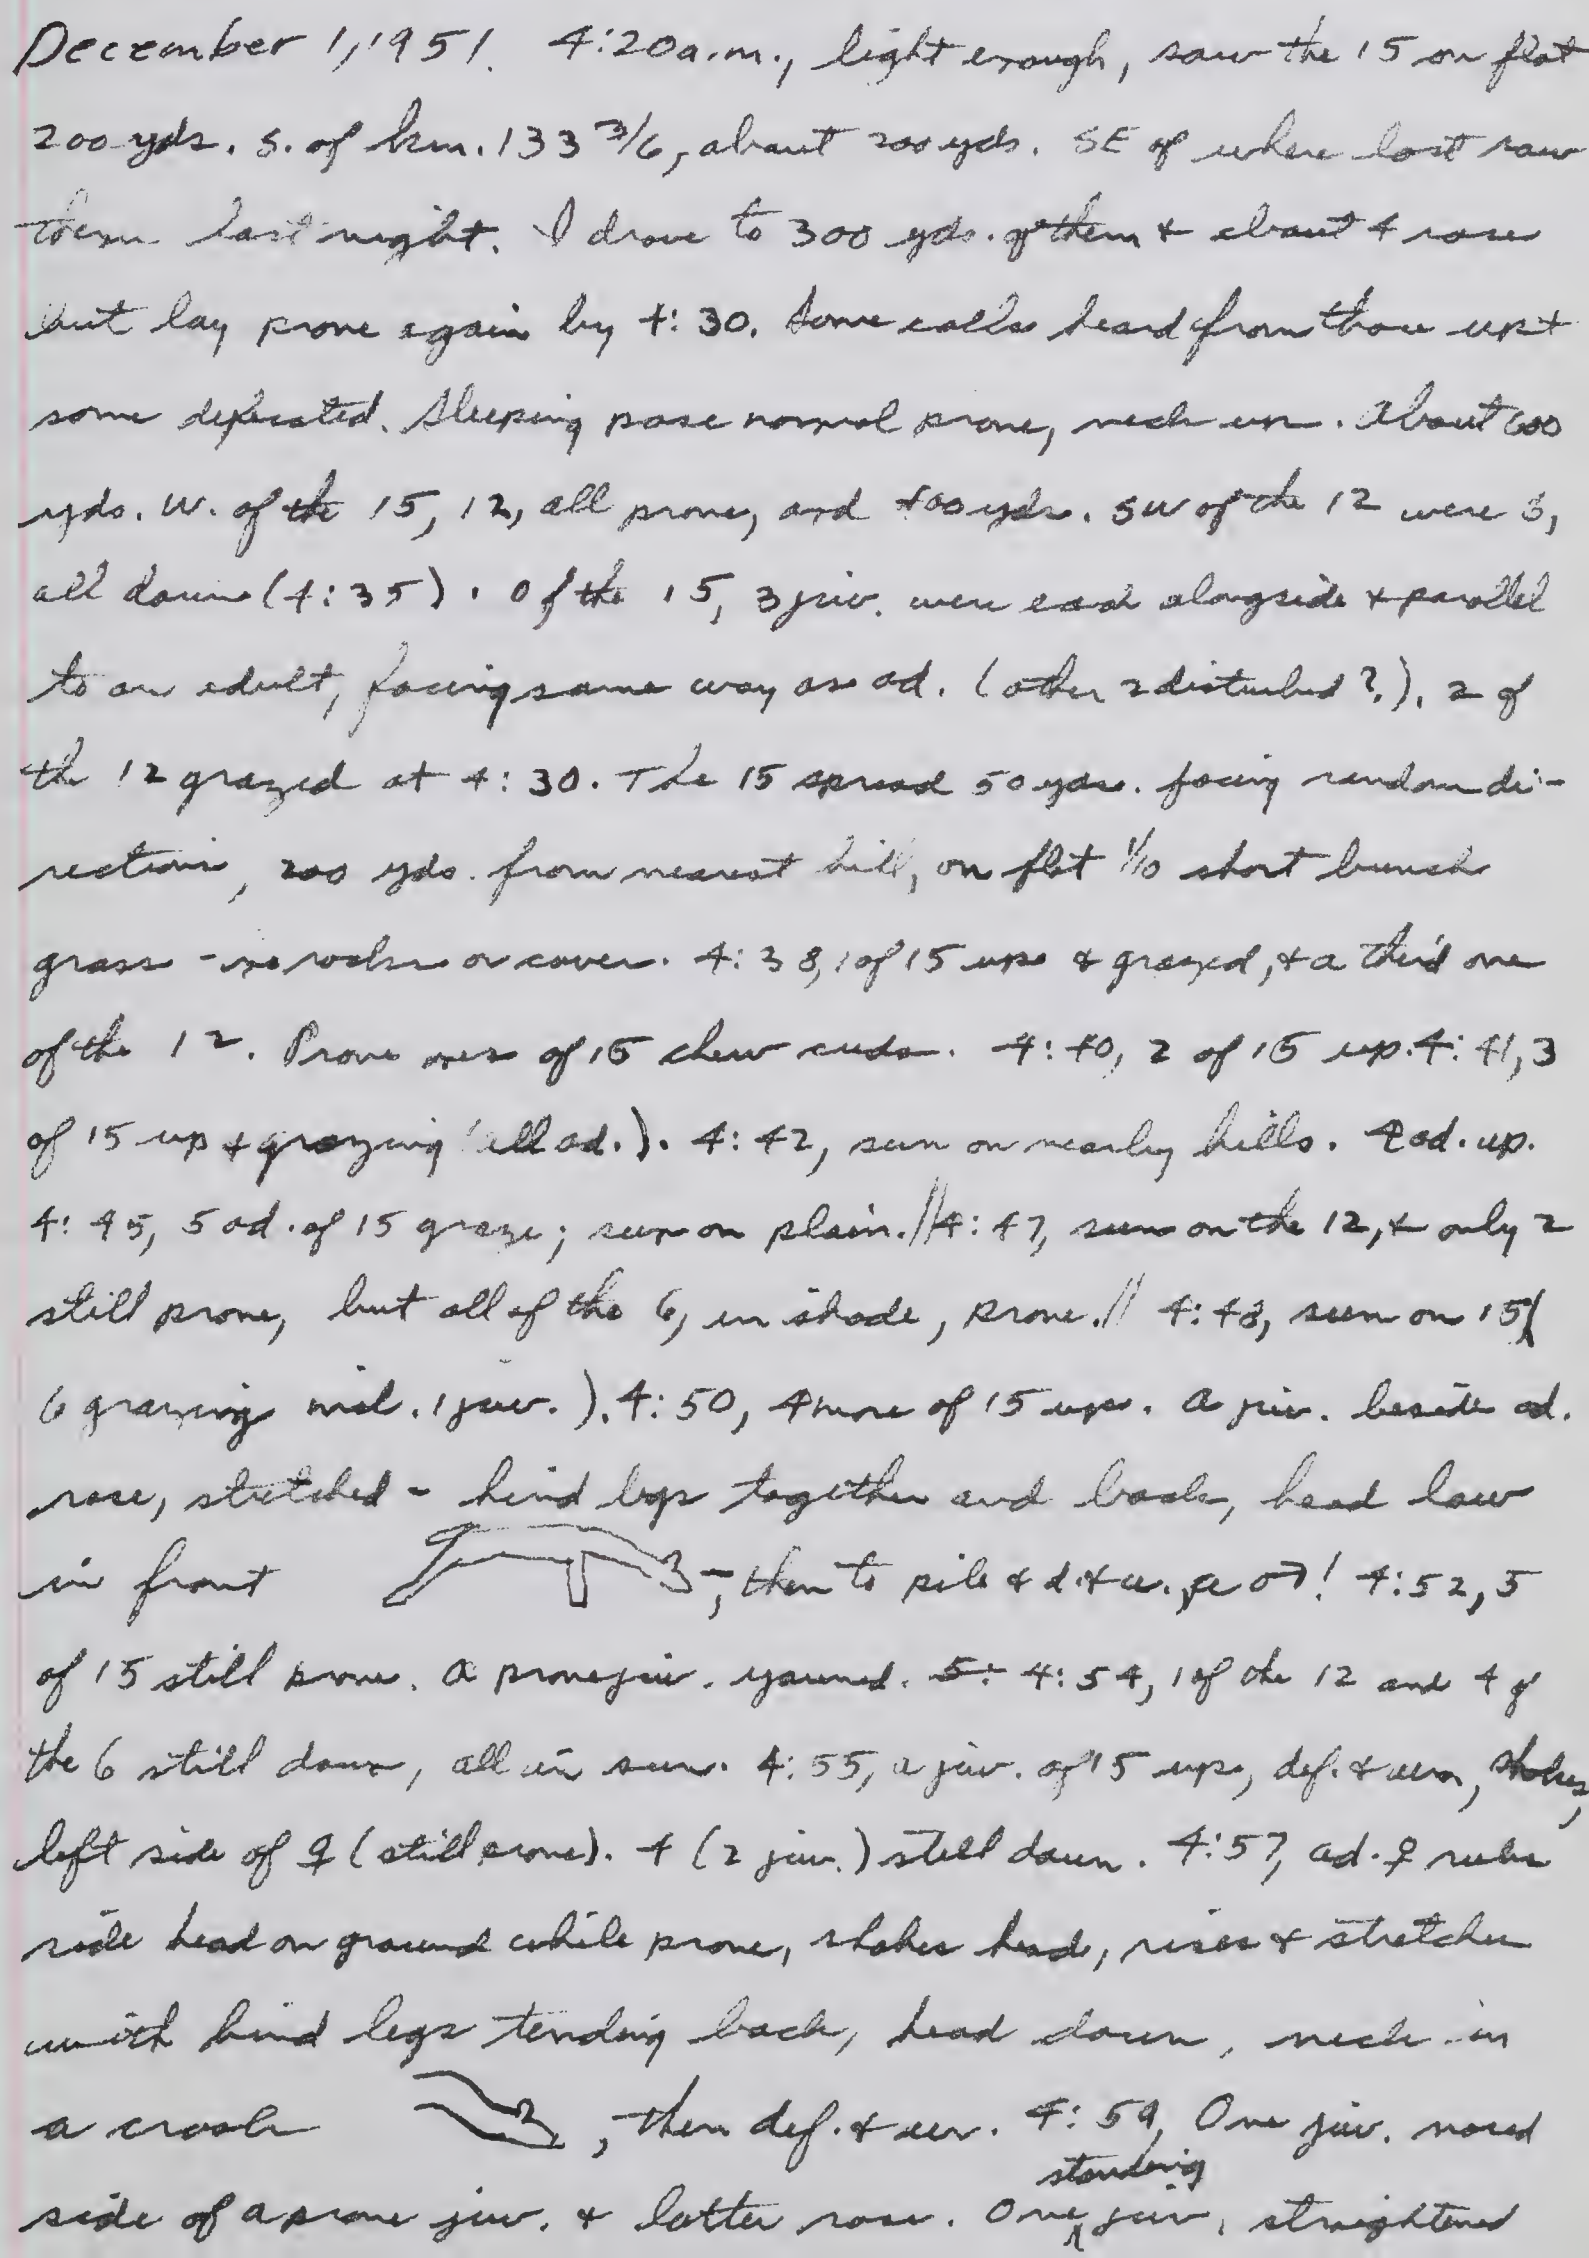 December 1, 1951. 4:20 a.m., light enough, saw the 15 on flat
200 yds. S. of km. 133 3/6, about 200 yds. SE of where last saw
them last night. I drove to 300 yds. of them & about 4 rose
but lay prone again by 4:30. Some calls heard from those up &
some defecated. Sleeping pose normal prone, neck up. About 600
yds. W. of the 15, 12, all prone, and 400 yds. SW of the 12 were 3,
all down (4:35). Of the 15, 3 juv. were each alongside & parallel
to an adult, facing same way as ad. (other 2 disturbed?). 2 of
the 12 grazed at 4:30. The 15 spread 50 yds. facing random di-
rections, 200 yds. from nearest hill, on flat 1/10 short bunch
grass - no rocks or cover. 4:38, 1 of 15 up & grazed, & a third one
of the 12. Prone ones of 15 chew cuds. 4:40, 2 of 15 up. 4:41, 3
of 15 up & grazing (all ad.). 4:42, sun on nearby hills. 4 ad. up.
4:45, 5 ad. of 15 graze; sun on plain. // 4:47, sun on the 12, & only 2
still prone, but all of the 6, in shade, prone. // 4:48, sun on 15 (
6 grazing incl. 1 juv.). 4:50, 4 more of 15 up. A juv. beside ad.
rose, stretched - hind legs together and back, head low
in front -, then to pile & d. & u. ♂! 4:52, 5
of 15 still prone. A prone juv. yawned. 5: 4:54, 1 of the 12 and 4 of
the 6 still down, all in sun. 4:55, a juv. of 15 up, def. & urn,
left side of ♀ (still prone). 4 (2 juv.) still down. 4:57, ad. ♀ rubs
side head on ground while prone, shakes head, rises & stretches
with hind legs tending back, head down, neck in
a crook, then def. & ur. 4:59, One juv. nosed
side of a prone juv. & latter rose. One standing juv. straightened